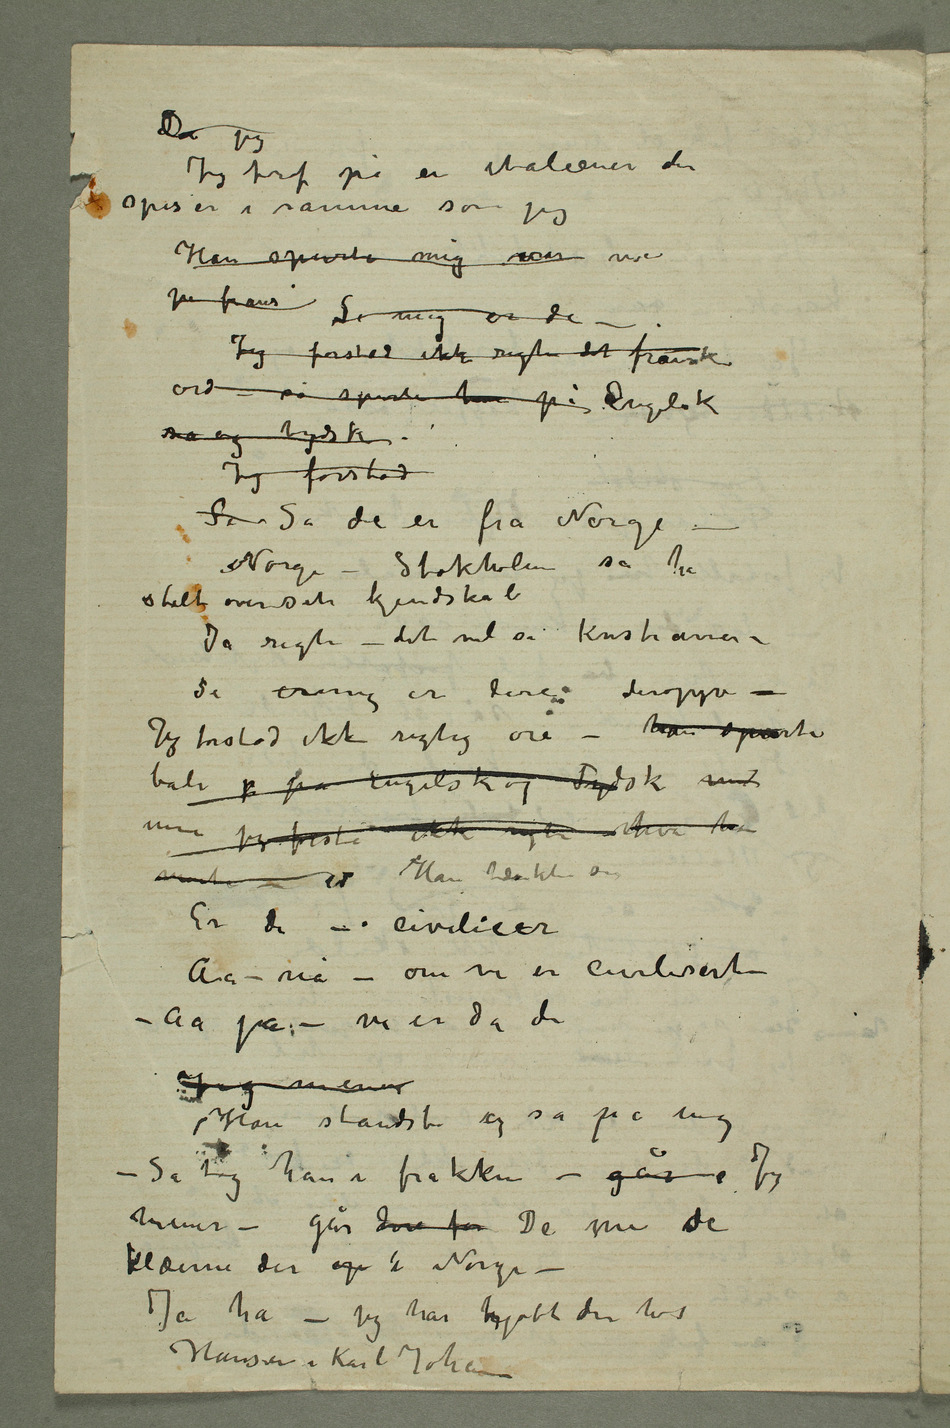 Da jeg
Jeg traf på en italiener der
spiser i samme som jeg
Han spurte mig
på frans Si mig er de –
Jeg forstod ikke rigtig det franske
ord – så spurte han på Engelsk
så og tydsk.
Jeg forstod
Så Så de er fra Norge –
Norge – Stokholm sa han
stolt over sit kjendskab
Ja rigtig – det vil si Kristiania –
Si mig er dere deroppe –
Jeg forstod ikke rigtig – han spurte
både på Engelsk og Tydsk
men jeg forstod ikke rigtig hva han
mente – Han tænkte
Er de – civilicer
Aa – nå – om vi er civiliserte
– Aa ja – vi er da det
Jeg mener
Han standste og så på mig
– Så tog han i frakken – går Jeg
mener – går De med de
klæerne der i Norge –
Ja ha – jeg har kjøbt den hos
Hansen i Karl Johan